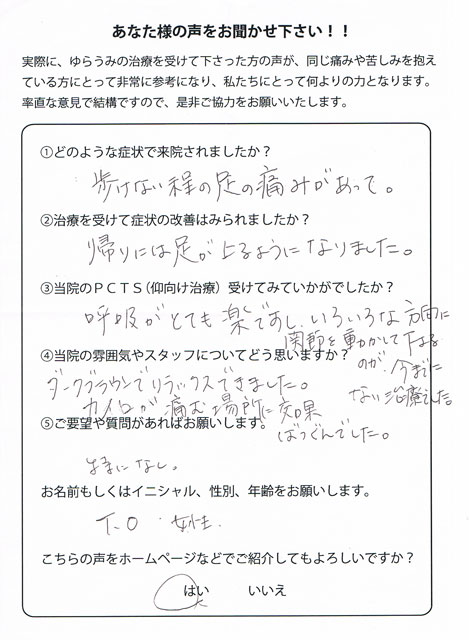 あなた様の声をお聞かせ下さい！！
実際に、ゆらうみの治療を受けて下さった方の声が、同じ痛みや苦しみを抱え
ている方にとって非常に参考になり、私たちにとって何よりの力となります。
率直な意見で結構ですので、是非ご協力をお願いいたします。
①どのような症状で来院されましたか？
歩けない程の足の痛みがあって。
②治療を受けて症状の改善はみられましたか？
帰りには足が上るようになりました。
③当院のＰＣＴＳ（仰向け治療）受けてみていかがでしたか？
呼吸がとても楽ですし、いろいろな方向に
関節を動かして下さる
のが、今までに
ない治療でした。
④当院の雰囲気やスタッフについてどう思いますか？
ダークブラウンでリラックスできました。
カイロが痛む場所に効果
ばつぐんでした。
⑤ご要望や質問があればお願いします。
特になし。
お名前もしくはイニシャル、性別、年齢をお願いします。
T.O 女性
こちらの声をホームページなどでご紹介してもよろしいですか？
はい いいえ